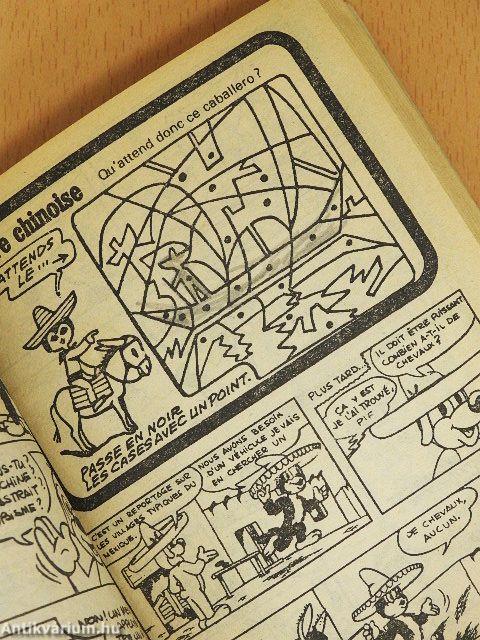 Qu'attend donc ce caballero?
e chinoise
ATTENDS
LE ...
PASSE EN NOIR
LES CASES AVEC UN POINT.
S-TU?
CHINE
ASTRAIT
C'EST UN REPORTAGE SUR
LES VILLAGES TYPIQUES DU
MEXIQUE.
NOUS AVONS BESOIN
D'UN VÉHICULE JE VAIS
EN CHERCHER UN
PLUS TARD...
ÇA Y EST
JE L'AI TROUVÉ,
PIF
IL DOIT ÊTRE PUISSANT
COMBIEN A-T-IL DE
CHEVAUX?
JE CHEVAUX,
AUCUN.
Antikvarium.hu